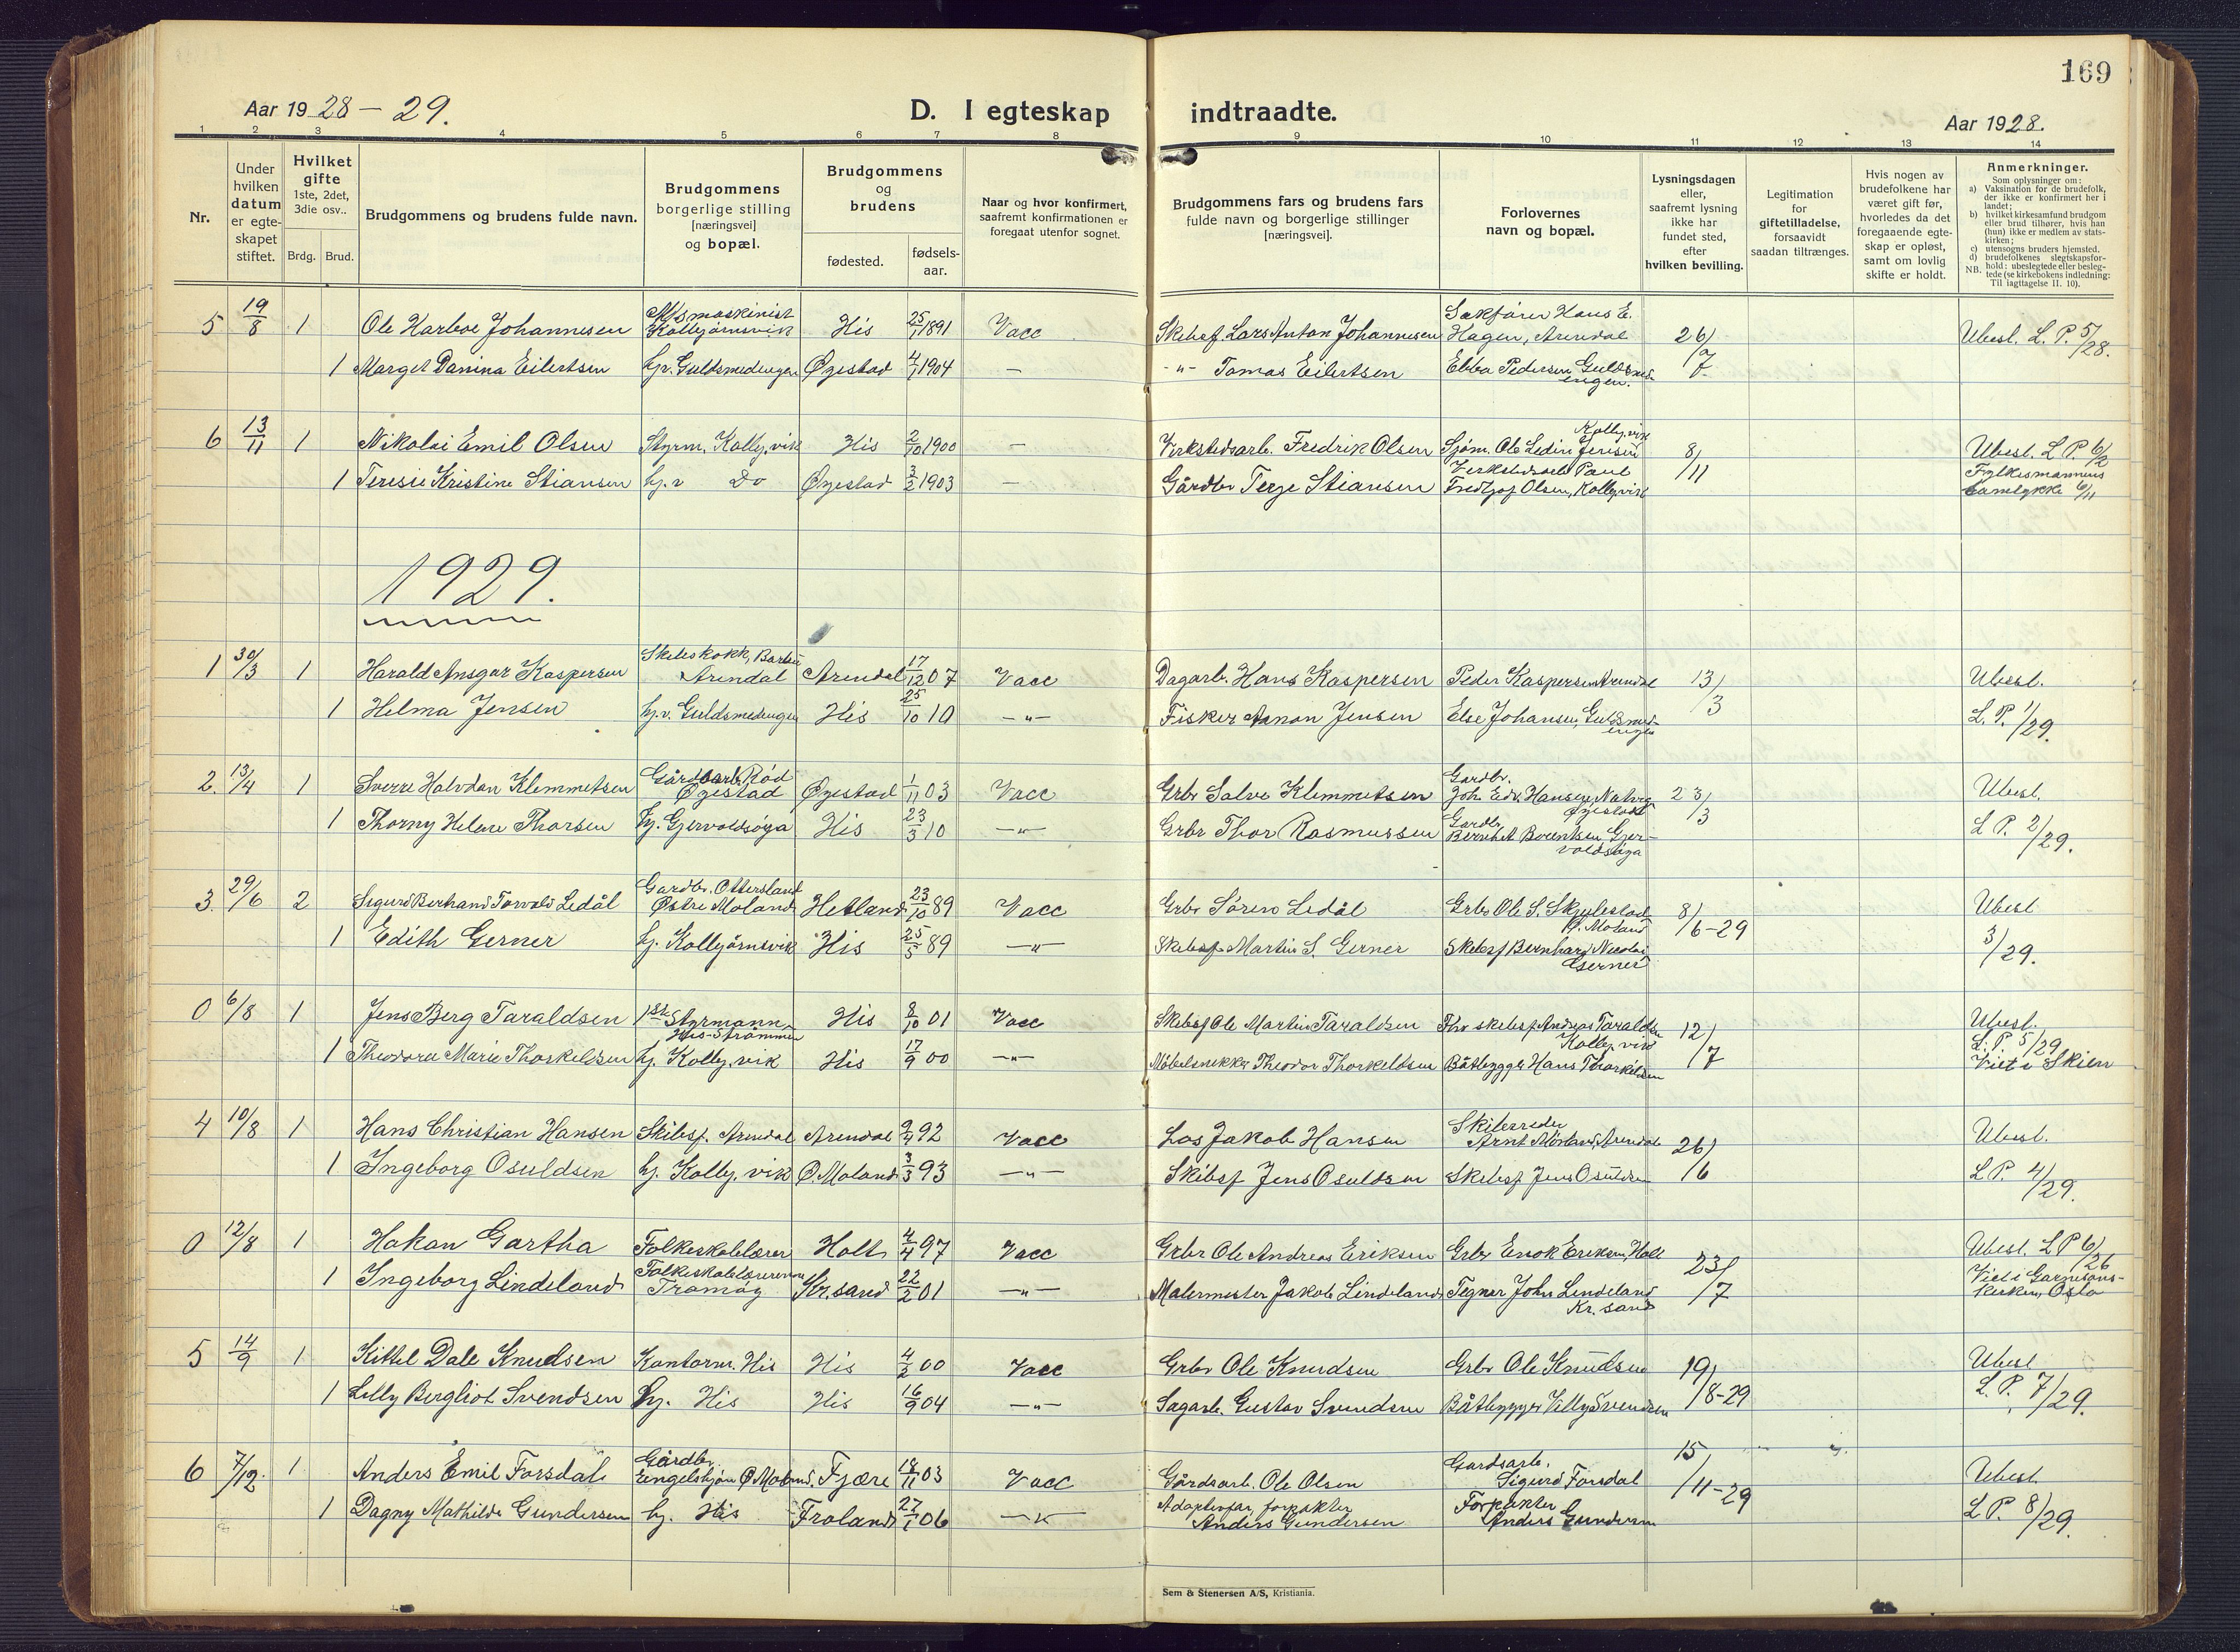 169
Aar 1928 – 29.
D. I egteskap indtraadte.
Aar 1928.
1 2 3 4 5 6 7 8 9 10 11 12 13 14
Nr.
Under hvilken datum er egteskapet stiftet.
Hvilket gifte 1ste, 2det, 3die osv..
Brdg. Brud.
Brudgommens og brudens fulde navn.
Brudgommens borgerlige stilling [næringsvei] og bopæl.
Brudgommens og brudens
fødested.
fødsels-aar.
Naar og hvor konfirmert, saafremt konfirmationen er foregaat utenfor sognet.
Brudgommens fars og brudens fars fulde navn og borgerlige stillinger [næringsvei].
Forlovernes navn og bopæl.
Lysningsdagen eller, saafremt lysning ikke har fundet sted, efter hvilken bevilling.
Legitimation for giftetilladelse, forsaavidt saadan tiltrænges.
Hvis nogen av brudefolkene har været gift før, hvorledes da det foregaaende egteskap er opløst, samt om lovlig skifte er holdt.
Anmerkninger.
Som oplysninger om:
a) Vaksination for de brudefolk, der ikke er konfirmert her i landet;
b) hvilket kirkesamfund brudgom eller brud tilhører, hvis han (hun) ikke er medlem av statskirken;
c) utensogns bruders hjemsted.
d) brudefolkenes slegtskapsforhold: ubeslegtede eller beslegtede (se kirkebokens indledning: Til iagttagelse II. 10).
NB.
5 19/8 1 Ole Karboe Johannesen Msmaskinist Kolbjørnsvik His 25/1 1891 Vacc Skibsf Lars Anton Johannesen Sakfører Hans E. Hagen, Arendal 26/7 Ubesl. L. P. 5/28.
1 Marget Danina Eilertsen hj. Guldsmedengen Øyestad 4/1 1904 — -"- Tomas Eilertsen Ebba Pedersen Guldsmedengen.
6 13/11 1 Nikolai Emil Olsen Styrm. Kolbj.vik His 2/10 1900 — Verkstedsarb. Fredrik Olsen Sjøm. Ole Ledin Jensen Kolbj.vik 8/11 Ubesl. L P. 6/2
1 Teresie Kristine Stiansen hj. v Do Øyestad 3/2 1903 — Gårdbr Terje Stiansen Verkstedsarb Paul Fredtjof Olsen, Kolbj.vik Fylkesmannens samtykke 6/11
1929.
1 30/3 1 Harald Ansgar Kaspersen Skibskokk, Barbu Arendal Arendal 17/12 07 Vacc Dagarb. Hans Kaspersen Peder Kaspersen Arendal 13/3 Ubesl.
1 Helma Jensen hj.v. Guldsmedengen His 25/10 10 —"— Fisker Anton Jensen Else Johansen, Guldsmedengen L. P. 1/29.
2. 13/4 1 Sverre Halvdan Klemmetsen Gårdbarb. Rød Øyestad Øyestad 1/11 03 Vacc Grbr Salve Klemmetsen Gardbr. Joh. Edv. Hansen, Natvig Øyestad 23/3 Ubesl.
1 Thorny Helene Thorsen hj. Gjervoldsøya His 23/3 10 —"— Grbr Thor Rasmussen Gardbr Berntsen, Gjervoldsøya L P. 2/29.
3. 29/6 2 Sigurd Berhard Torvald Ledål Gardbr. Ottersland Østre Moland Hetland 23/10 89 Vacc Grbr Søren Ledål Grbr Ole S. Skjulestad Ø. Moland 8/6-29 Ubesl
1 Edith Gerner hj. Kolbjørnsvik His 25/5 89 —"— Skibsf Martin S. Gerner Skibsf Bernhard Nicolai Gerner 3/29.
0 6/8 1 Jens Berg Taraldsen 1st Styrmann His-Strømmen His 8/10 01 Vacc Skibsf Ole Martin Taraldsen Fhv skibsf Andreas Taraldsen Kolbj.vik 12/7 Ubesl.
1 Theodora Marie Thorkeldsen hj. Kolbj.vik His 17/9 00 —"— Møbelsnekker Theodor Thorkeldsen Båtbygger Hans Thorkeldsen L. P. 5/29 Viet i Skien
4 10/8 1 Hans Christian Hansen Skibsf. Arendal Arendal 9/4 92 Vacc Los Jakob Hansen Skibsreder Arnt Mørland, Arendal 26/6 Ubesl.
1 Ingeborg Osuldsen hj. Kolbj.vik Ø. Moland 3/3 93 —"— Skibsf Jens Osuldsen Skibsf Jens Osuldsen L P. 4/29.
0 12/8 1 Hakan Gartha Folkeskolelærer Holt 4/4 97 Vacc Grbr Ole Andreas Eriksen Grbr Enok Eriksen, Holt 23/7 Ubesl. L P 6/26
1 Ingeborg Lindeland Folkeskolelærerinne Tromøy Kr.sand 22/2 01 —"— Malermester Jakob Lindeland Tegner John Lindeland Kr. sand Viet i Garnisonskirken, Oslo
5 14/9 1 Kittel Dale Knudsen Kontorm. His His 4/2 00 Vacc Grbr Ole Knudsen Grbr Ole Knudsen 19/8-29 Ubesl
1 Lilly Bergliot Svendsen hj. His His 16/9 04 —"— Sagarb. Gustav Svendsen Båtbygger Villy Svendsen L. P. 7/29.
6 7/12. 1 Anders Emil Forsdal Gårdbr. Engelshjøn Ø Moland. Fjære 18/11 03 Vacc Gårdsarb. Ole Olsen Gardsarb. Sigurd Forsdal 15/11-29 Ubesl
1 Dagny Mathilde Gundersen hj. His Froland 27/1 06 —"— Adoptivfar, forpakter Anders Gundersen Forpakter Anders Gundersen L P. 8/29.
Sem & Stenersen A/S, Kristiania.